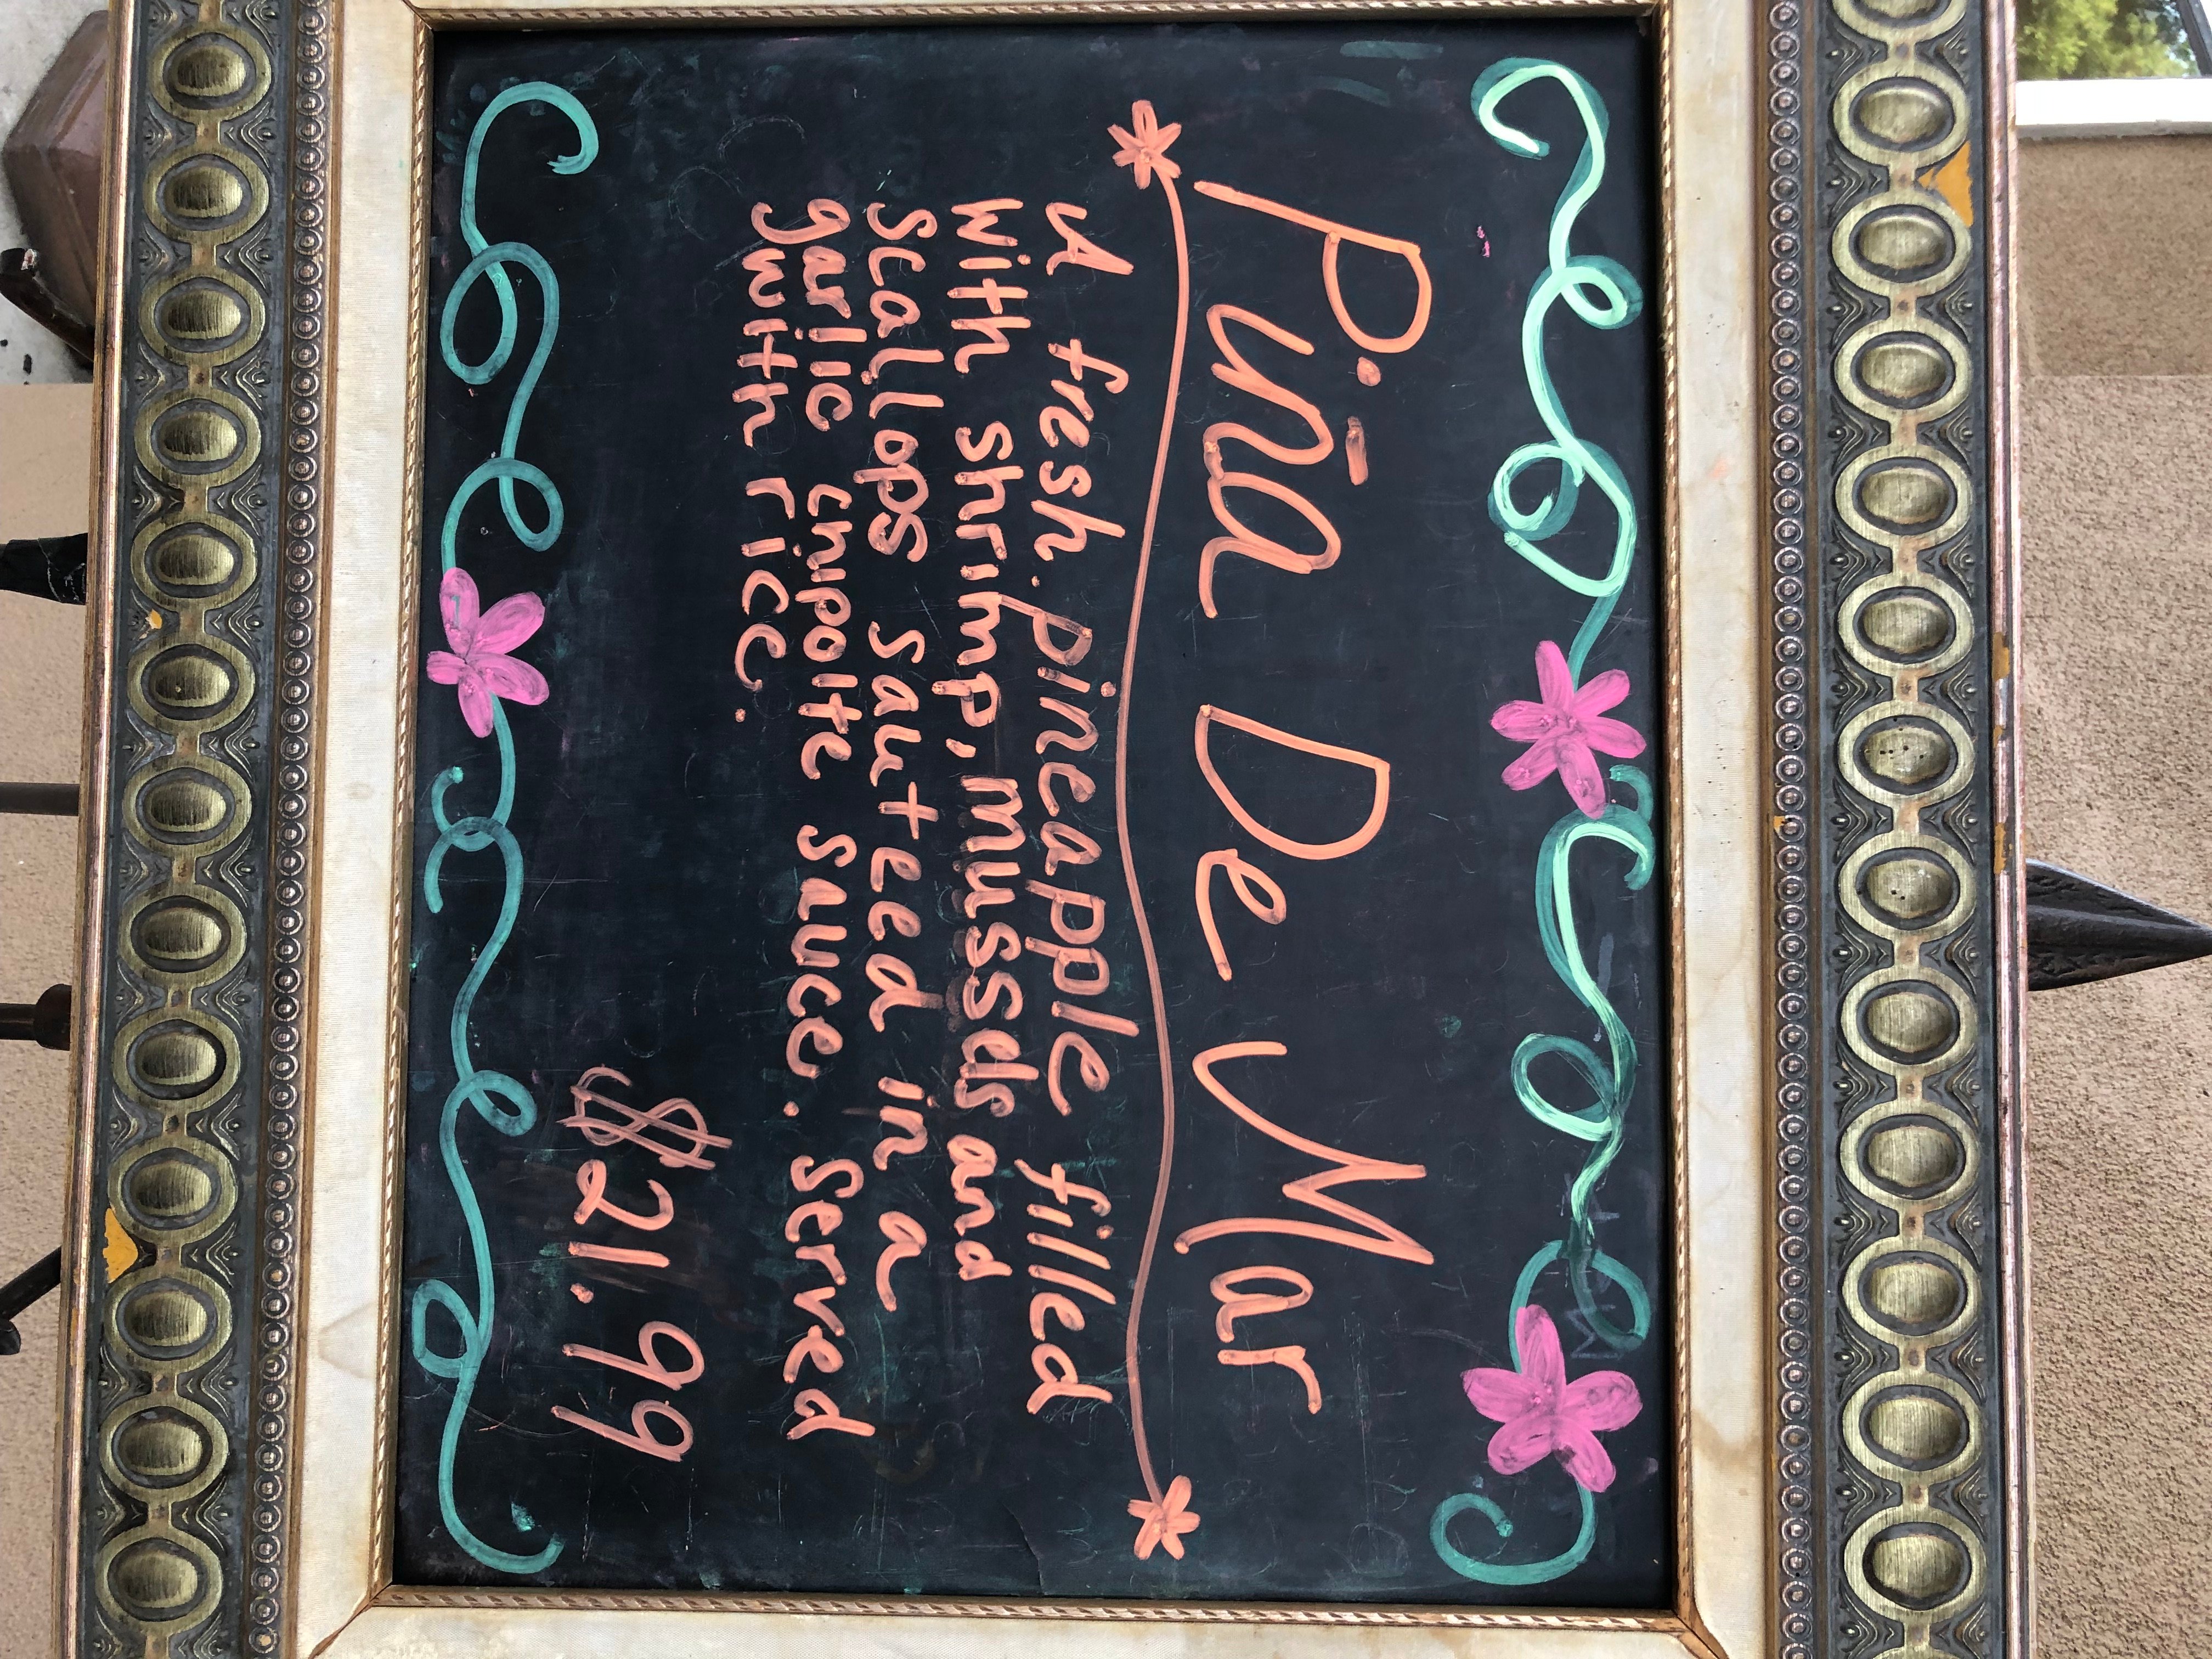 Piña De Mar
A fresh pineapple filled
with shrimp, mussels and
scallops sauteed in a
garlic chipolte sauce. Served
with rice.
$21.99